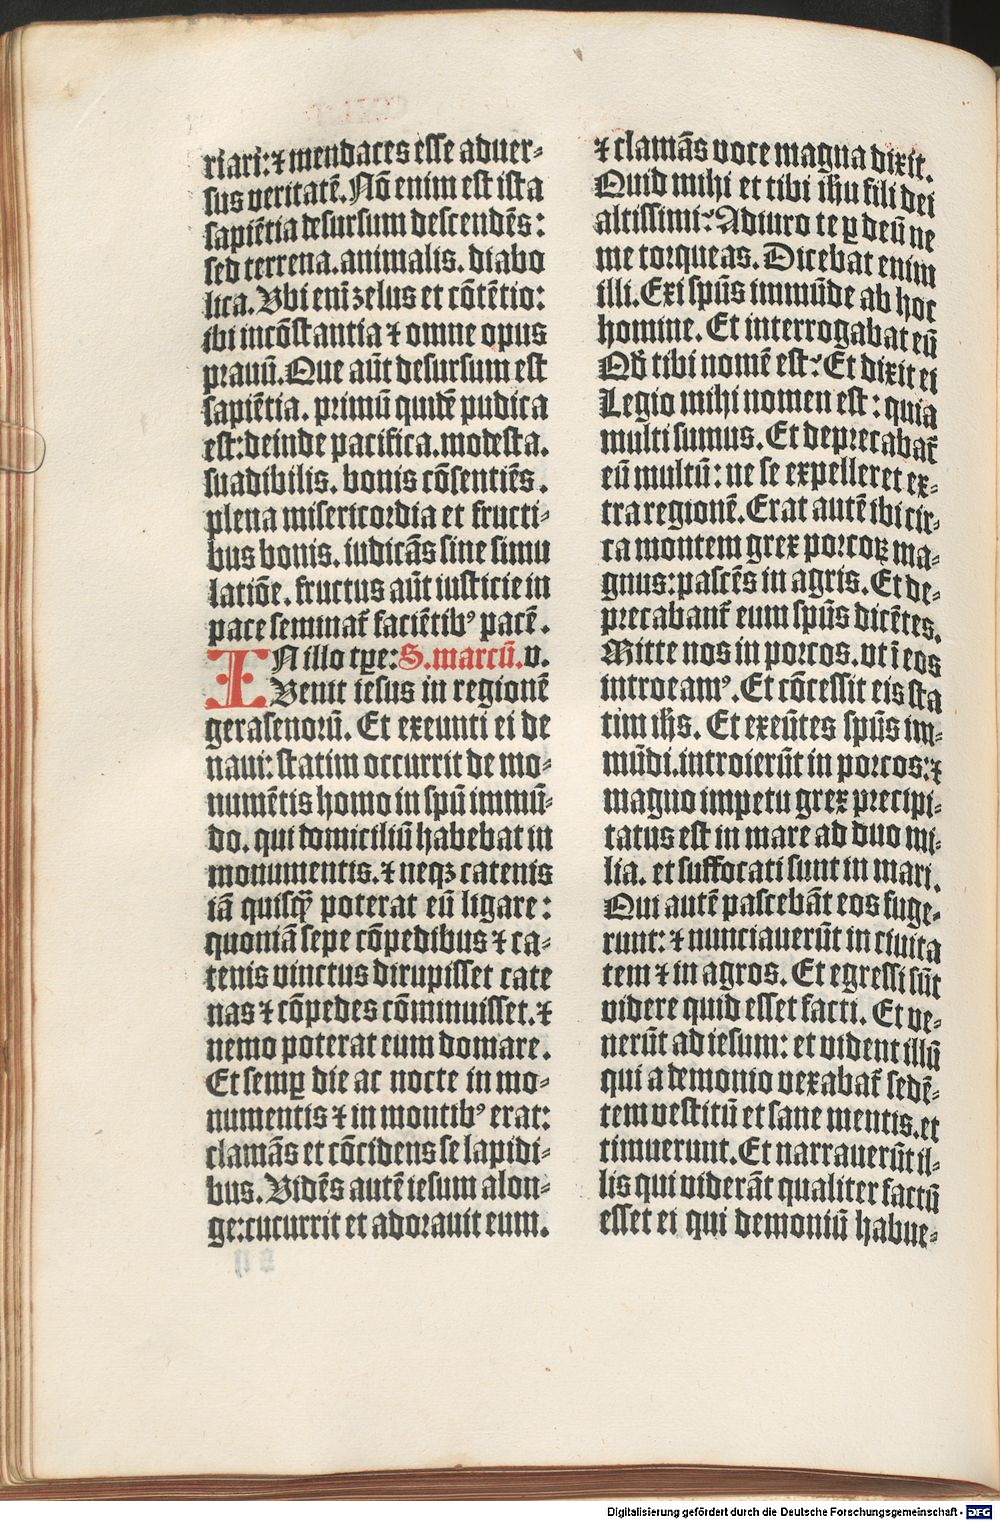 riari: ⁊ mendaces esse aduer-
sus veritatē. Nō enim est ista
sapiētia desursum descendēs:
sed terrena. animalis. diabo
lica. Vbi enī zelus et cōtētio:
ibi incōstantia ⁊ omne opus
prauū. Que aūt desursum est
sapiētia. primū quidē pudica
est: deinde pacifica. modesta.
suadibilis. bonis cōsentiēs.
plena misericordia et fructi-
bus bonis. iudicās sine simu
latiōe. fructus aūt iusticie in
pace seminat᷑ faciētibꝰ pacē.
IN illo tꝑe: S. marcū. v.
Venit iesus in regionē
gerasenorū. Et exeunti ei de
naui: statim occurrit de mo-
numētis homo in spū immū-
do. qui domiciliū habebat in
monumentis. ⁊ neqꝫ catenis
iā quisqᷓ poterat eū ligare:
quoniā sepe cōpedibus ⁊ ca-
tenis vinctus dirupisset cate
nas ⁊ cōpedes cōminuisset. ⁊
nemo poterat eum domare.
Et semꝑ die ac nocte in mo-
numentis ⁊ in montibꝰ erat:
clamās et cōcidens se lapidi-
bus. Vidēs autē iesum alon-
ge: cucurrit et adorauit eum.
⁊ clamās voce magna dixit.
Quid mihi et tibi ihū fili dei
altissimi? Adiuro te ꝑ deū ne
me torqueas. Dicebat enim
illi. Exi spūs immūde ab hoc
homine. Et interrogabat eū
Qđ tibi nomē est? Et dixit ei
Legio mihi nomen est: quia
multi sumus. Et deprecabat᷑
eū multū: ne se expelleret ex-
tra regionē. Erat autē ibi cir-
ca montem grex porcoꝝ ma-
gnus: pascēs in agris. Et de-
precabant᷑ eum spūs dicētes.
Mitte nos in porcos. vt ī eos
introeamꝰ. Et cōcessit eis sta
tim ihs̄. Et exeūtes spūs im-
mūdi. introierūt in porcos: ⁊
magno impetu grex precipi-
tatus est in mare ad duo mi-
lia. et suffocati sunt in mari.
Qui autē pascebāt eos fuge-
runt: ⁊ nunciauerūt in ciuita
tem ⁊ in agros. Et egressi sūt
videre quid esset facti. Et ve-
nerūt ad iesum: et vident illū
qui a demonio vexabat᷑ sedē-
tem vestitū et sane mentis. et
timuerunt. Et narrauerūt il-
lis qui viderāt qualiter factū
esset ei qui demoniū habue-
Digitalisierung gefördert durch die Deutsche Forschungsgemeinschaft - DFG